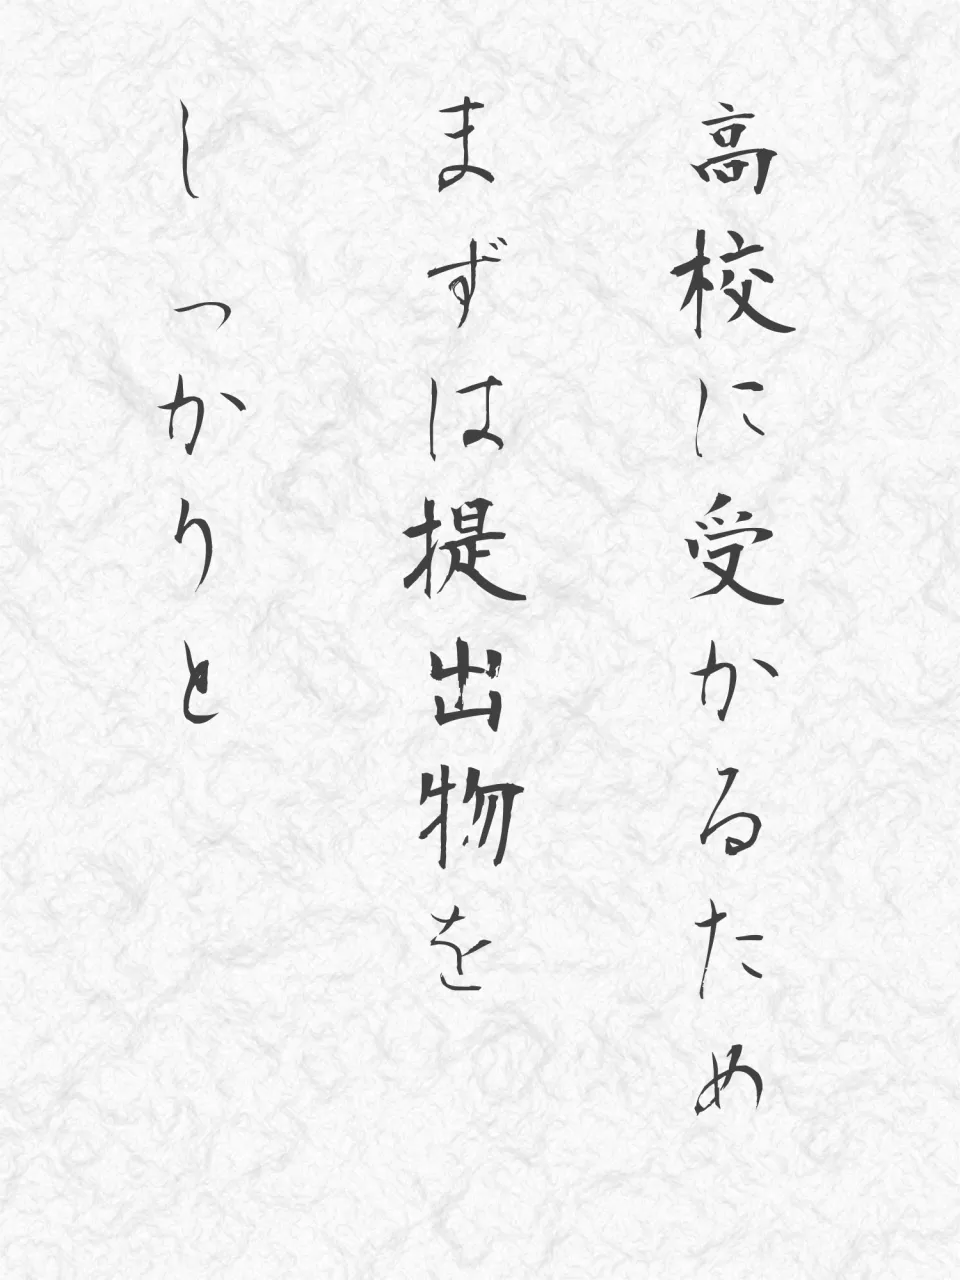 高校に受かるため
まずは提出物を
しっかりと